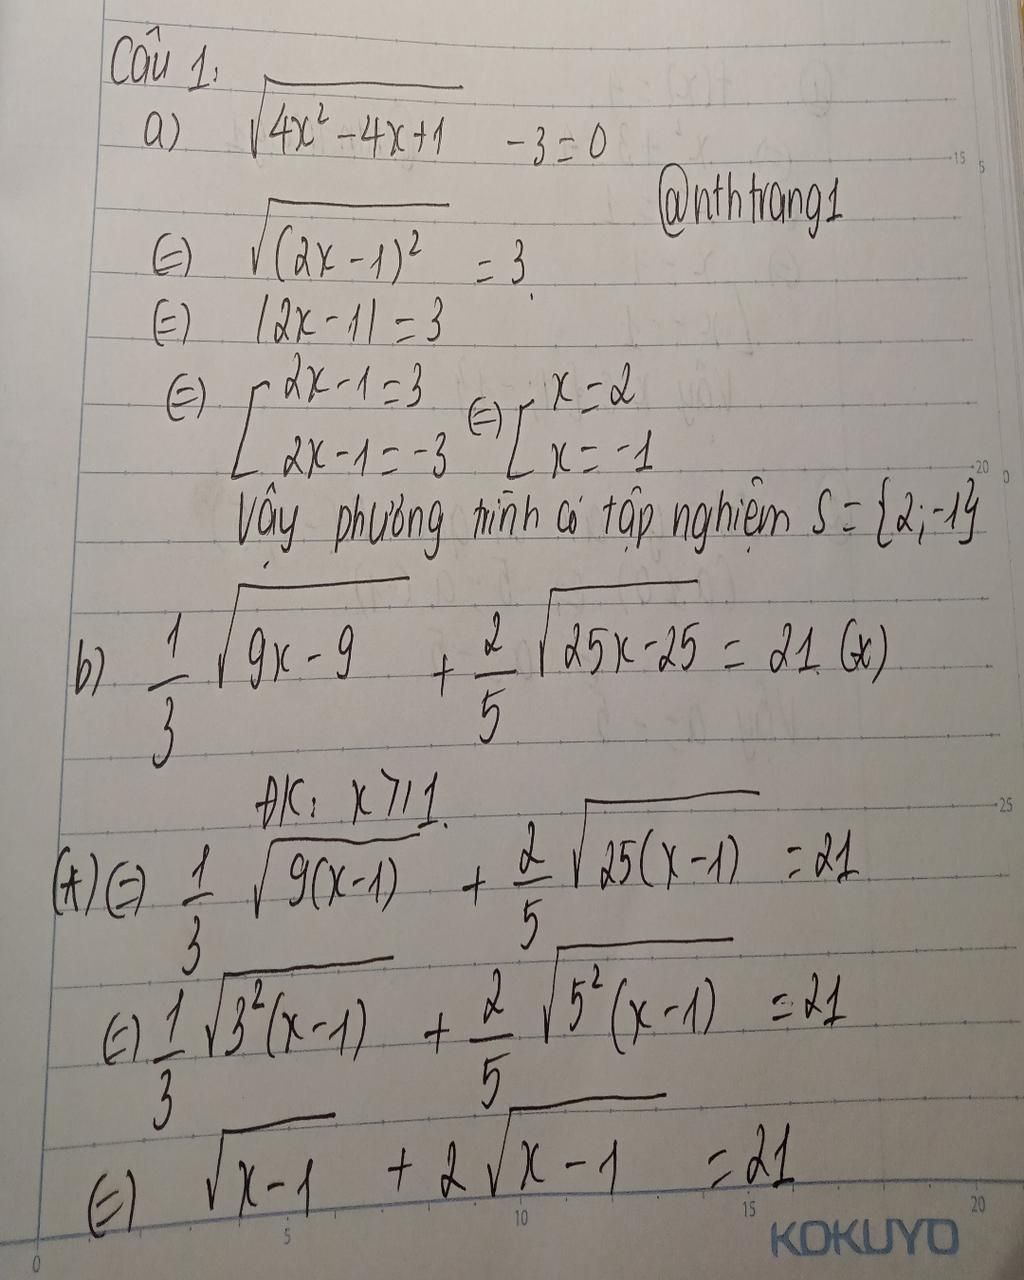 Câu 1:
a) √(4x² - 4x + 1) - 3 = 0
@nthtrang1
(=) √((2x - 1)²) = 3
(=) |2x - 1| = 3
(=) [ 2x - 1 = 3 (=) [ x = 2
2x - 1 = -3 x = -1
Vậy phương trình có tập nghiệm S = {2; -1}
b) 1/3 √(9x - 9) + 2/5 √(25x - 25) = 21 (*)
ĐK: x ≥ 1
(*) (=) 1/3 √(9(x - 1)) + 2/5 √(25(x - 1)) = 21
(=) 1/3 √(3²(x - 1)) + 2/5 √(5²(x - 1)) = 21
(=) √(x - 1) + 2√(x - 1) = 21
KOKUYO